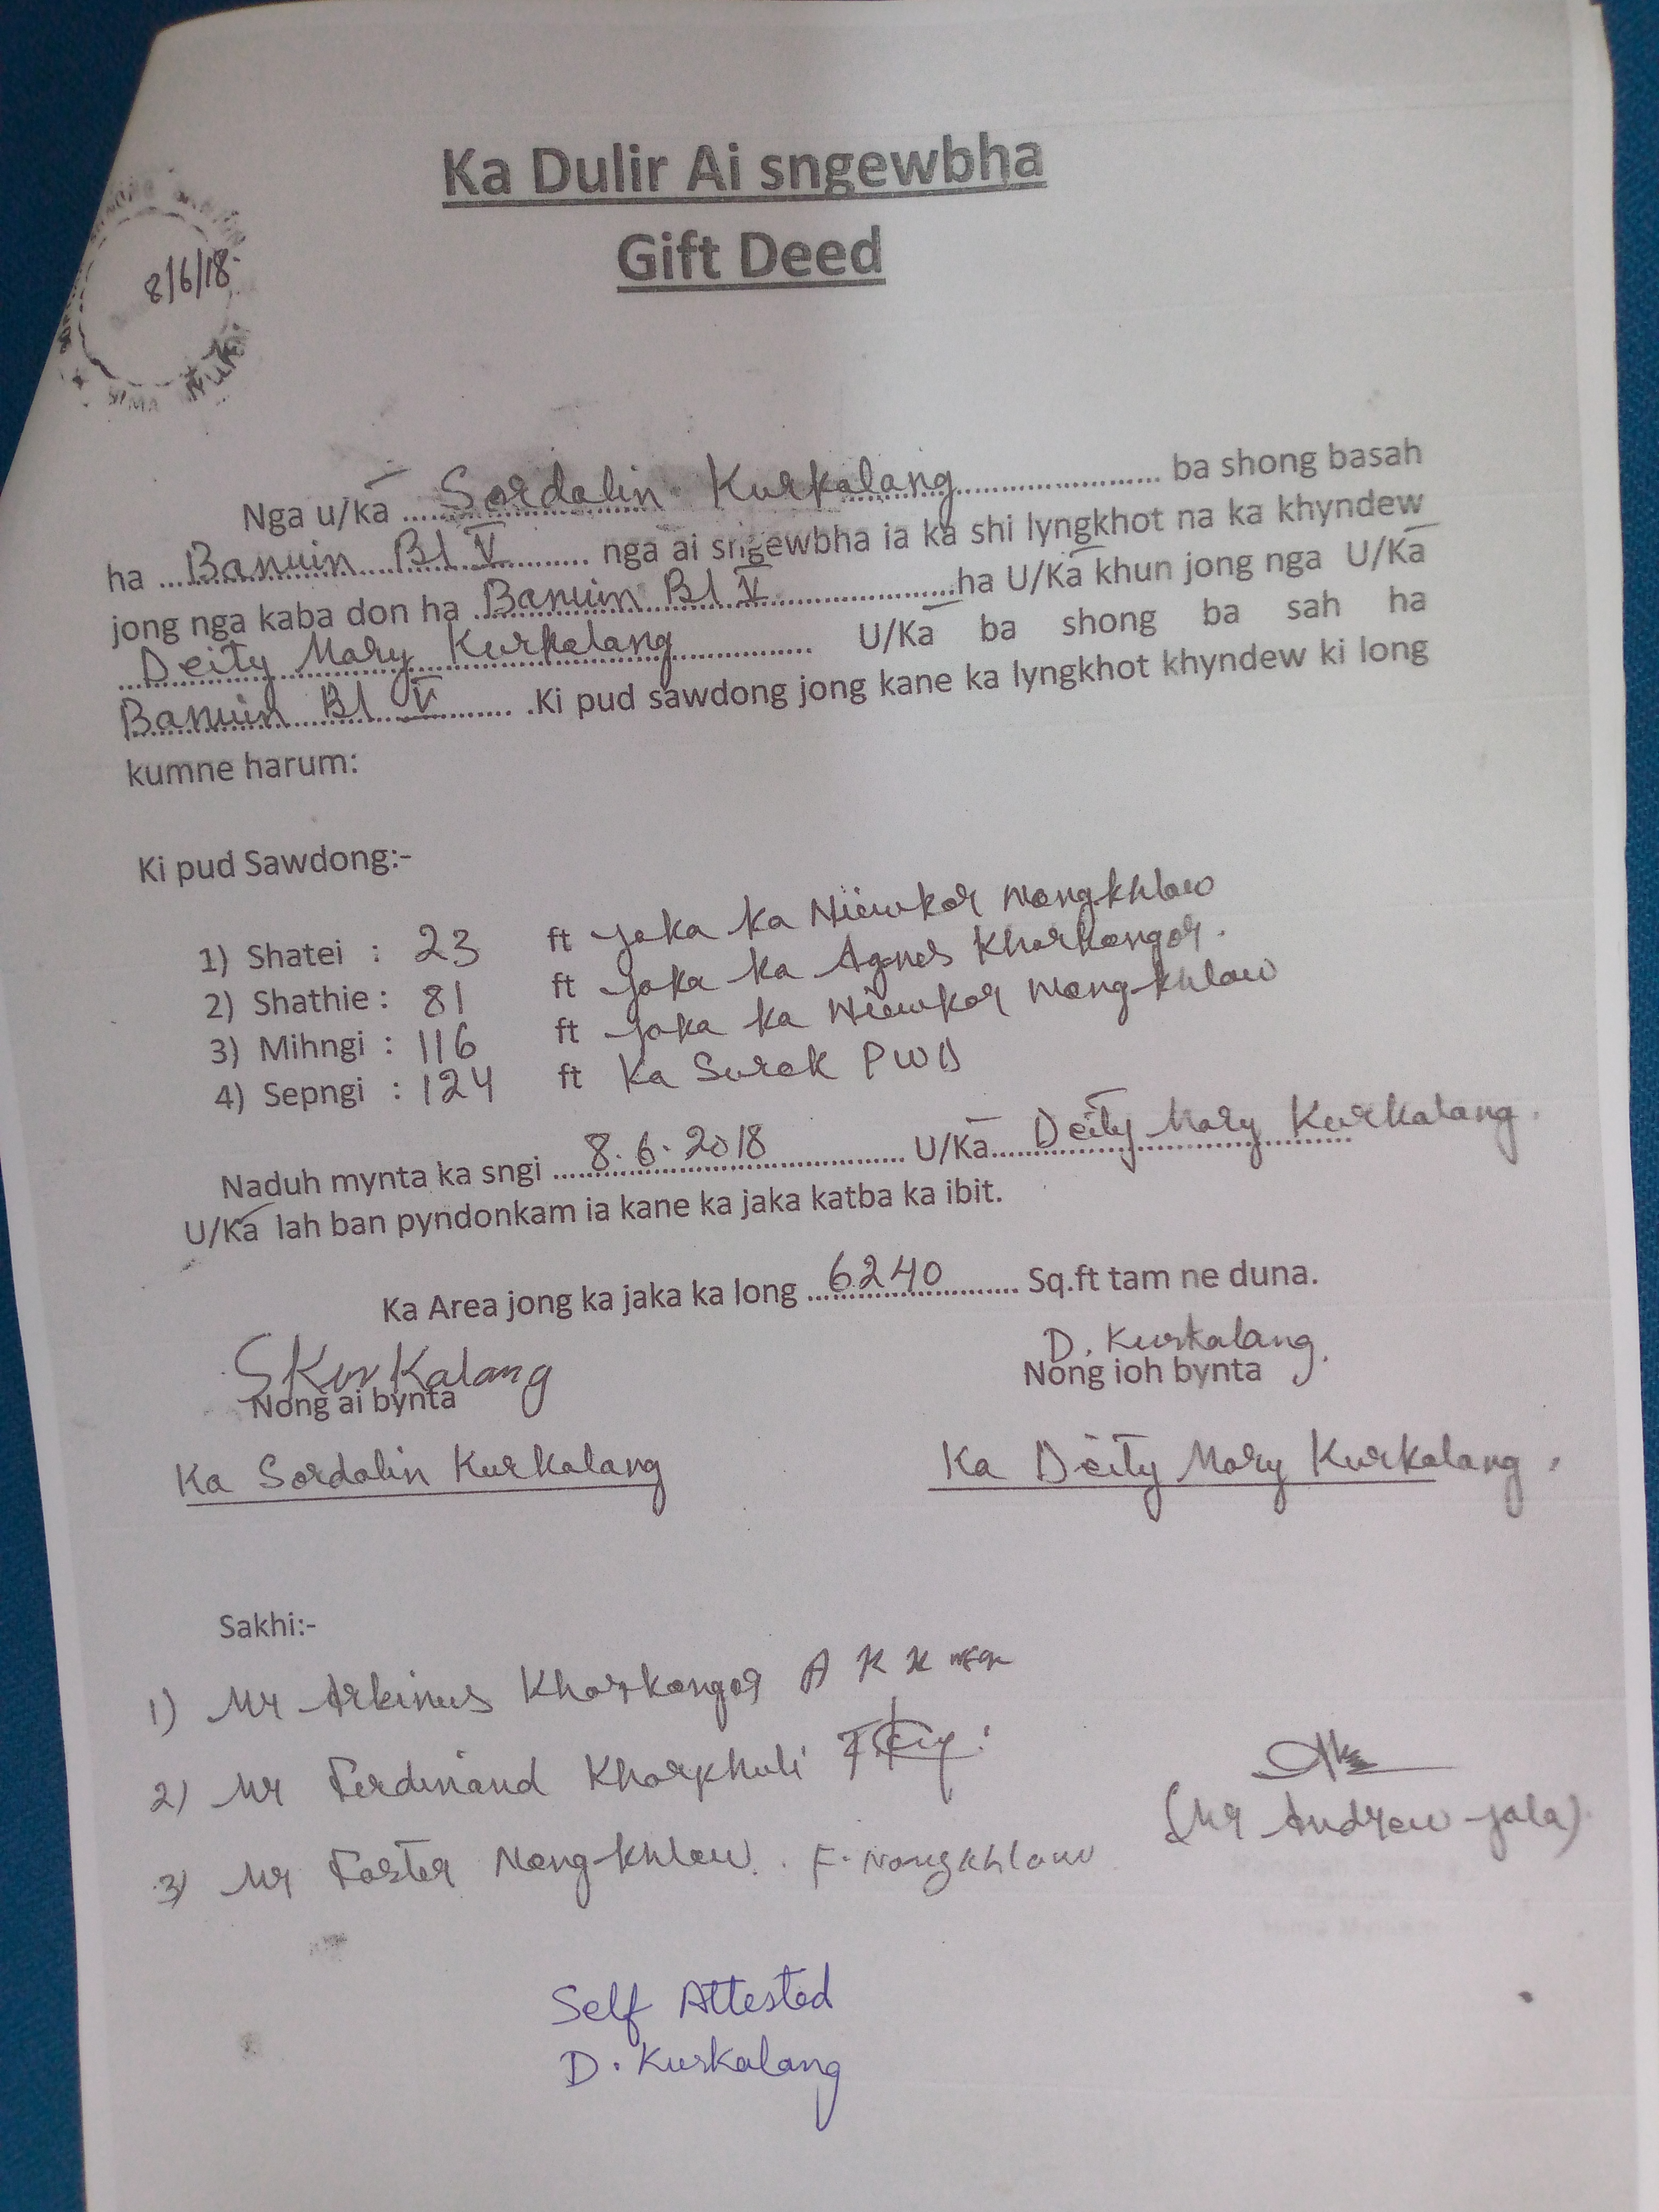 Ka Dulir Ai sngewbha
Gift Deed
8/6/18
Nga u/ka Sordalin Kurkalang ba shong basah
ha Banuin Bl V nga ai sngewbha ia ka shi lyngkhot na ka khyndew
jong nga kaba don ha Banuin Bl V ha U/Ka khun jong nga U/Ka
Deity Mary Kurkalang U/Ka ba shong ba sah ha
Banuin Bl V .Ki pud sawdong jong kane ka lyngkhot khyndew ki long
kumne harum:
Ki pud Sawdong:-
1) Shatei : 23 ft jaka ka Niewkor Nongkhlaw
2) Shathie : 81 ft jaka ka Agnes Kharkongor.
3) Mihngi : 116 ft jaka ka Niewkor Nongkhlaw
4) Sepngi : 124 ft Ka Surok PWD
Naduh mynta ka sngi 8.6.2018 U/Ka Deity Mary Kurkalang.
U/Ka lah ban pyndonkam ia kane ka jaka katba ka ibit.
Ka Area jong ka jaka ka long 6240 Sq.ft tam ne duna.
SKurkalang
Nong ai bynta
Ka Sordalin Kurkalang
D. Kurkalang.
Nong ioh bynta
Ka Deity Mary Kurkalang.
Sakhi:-
1) Mr Arkinus Kharkongor
2) Mr Ferdinand Kharphuli
3) Mr Foster Nongkhlaw. F. Nongkhlaw
(Mr Andrew Jala)
Self Attested
D. Kurkalang